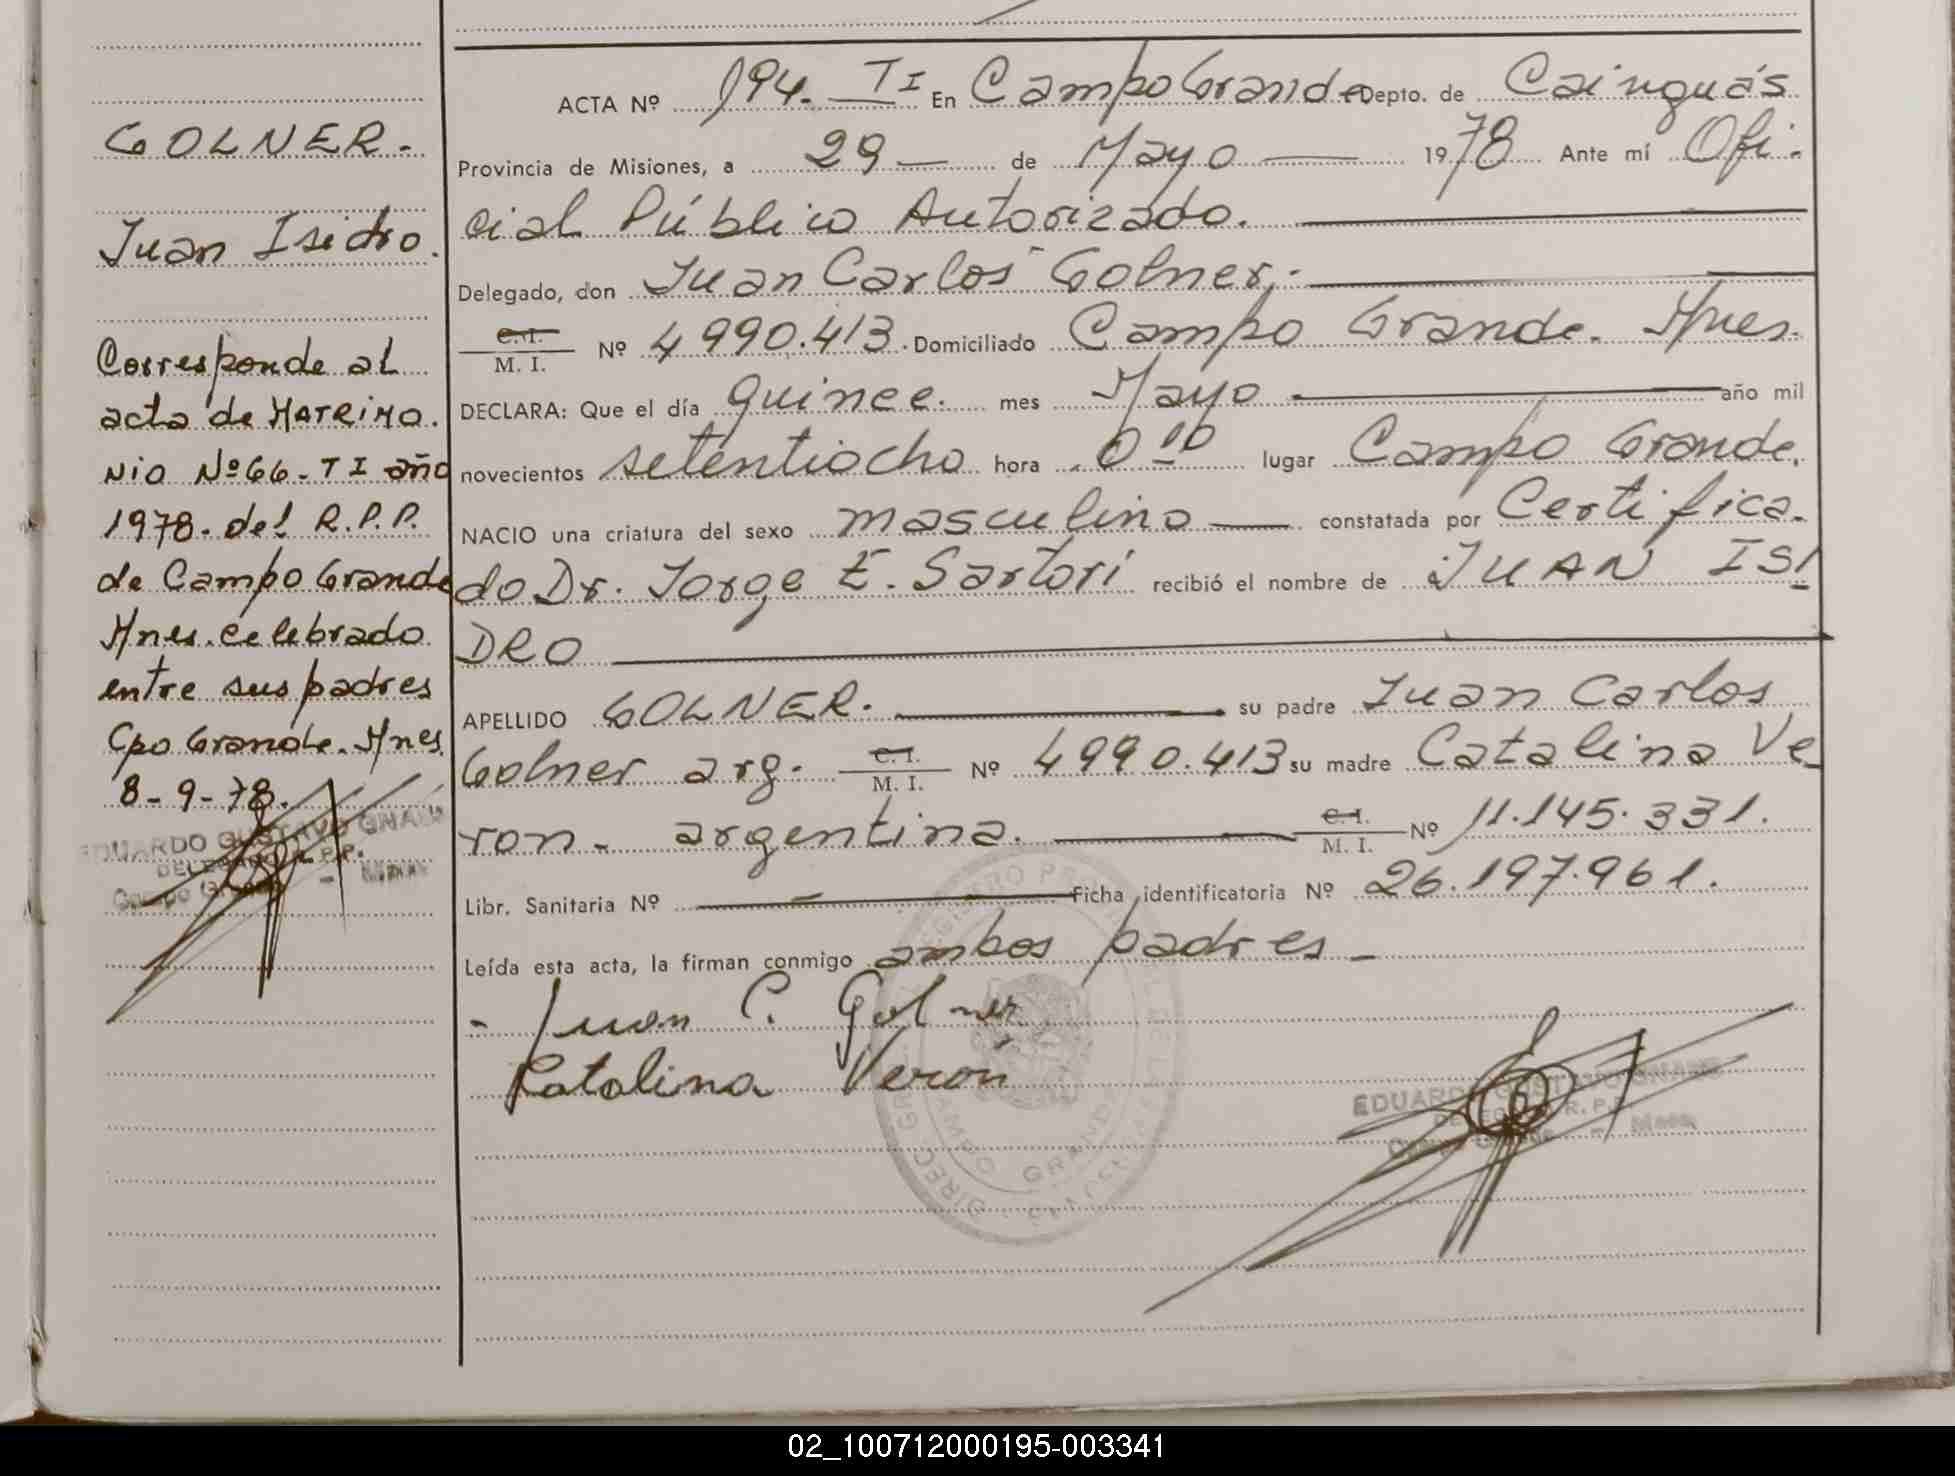 GOLNER.
Juan Isidro.
Corresponde al
acta de MATRIMO.
NIO Nº 66. T I año
1978. del R.P.P.
de Campo Grande
Mnes. celebrado
entre sus padres
Cpo Grande. Mnes.
8-9-78.
EDUARDO GUSTAVO
ACTA Nº 194. TI En Campo Grande Depto. de Cainguás
Provincia de Misiones, a 29 — de Mayo — 1978 Ante mí Ofi-
cial Público Autorizado.
Delegado, don Juan Carlos Golner.-
C.I. / M. I. Nº 4990.413. Domiciliado Campo Grande. Mnes.
DECLARA: Que el día quince. mes Mayo — año mil
novecientos setentiocho hora 0 10 lugar Campo Grande.
NACIO una criatura del sexo masculino — constatada por Certifica-
do Dr. Jorge E. Sartori recibió el nombre de JUAN ISI
DRO
APELLIDO GOLNER. — su padre Juan Carlos
Golner arg. C.I. / M. I. Nº 4990.413 su madre Catalina Ve
ron- argentina. — C.I. / M. I. Nº 11.145.331.
Libr. Sanitaria Nº — Ficha identificatoria Nº 26.197.961.
Leída esta acta, la firman conmigo ambos padres -
- Juan C. Golner
Catalina Verón
EDUARDO GUSTAVO
CAMPO GRANDE
02_100712000195-003341